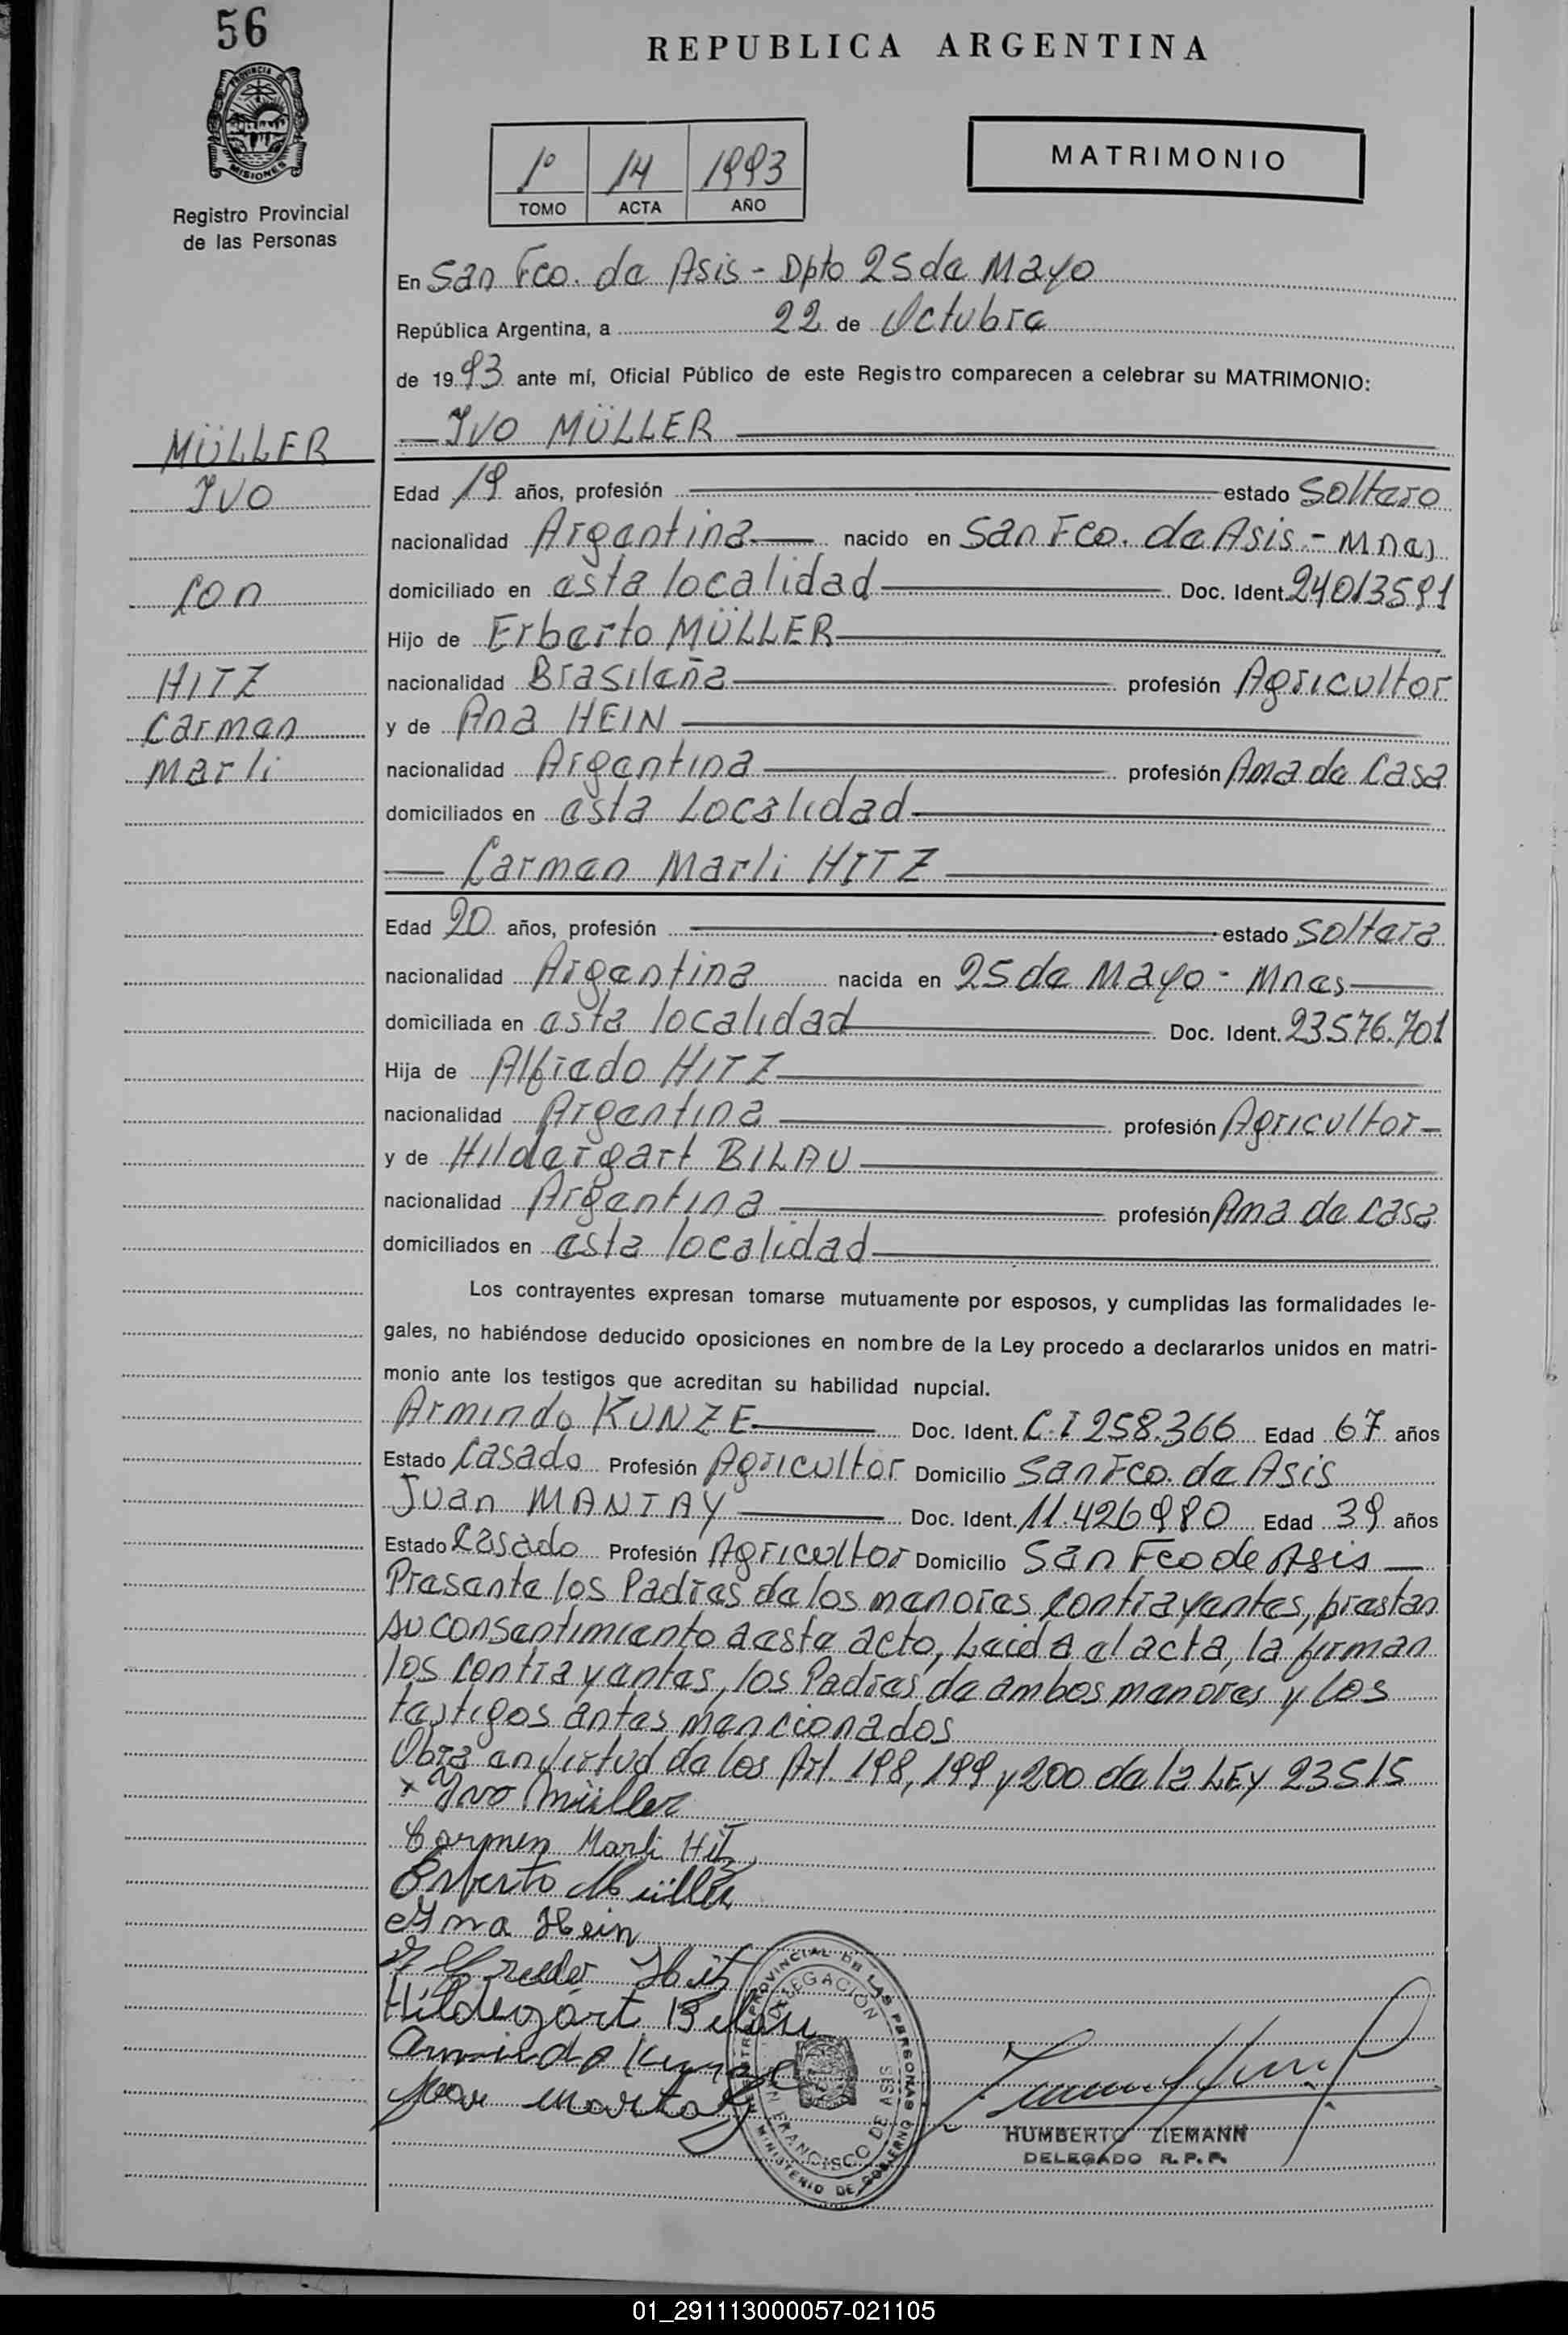 56
PROVINCIA DE
MISIONES
Registro Provincial
de las Personas
REPUBLICA ARGENTINA
1º 14 1993
TOMO ACTA AÑO
MATRIMONIO
En San Fco. de Asis - Dpto 25 de Mayo
República Argentina, a 22 de Octubre
de 1993 ante mí, Oficial Público de este Registro comparecen a celebrar su MATRIMONIO:
MÜLLER
IVO
con
HITZ
Carmen
Marli
IVO MÜLLER
Edad 19 años, profesión — estado Soltero
nacionalidad Argentina — nacido en San Fco. de Asis - Mnes
domiciliado en esta localidad — Doc. Ident. 24013591
Hijo de Erberto MÜLLER
nacionalidad Brasileña — profesión Agricultor
y de Ana HEIN
nacionalidad Argentina — profesión Ama de Casa
domiciliados en esta Localidad
— Carmen Marli HITZ —
Edad 20 años, profesión — estado Soltera
nacionalidad Argentina nacida en 25 de Mayo - Mnes —
domiciliada en esta localidad — Doc. Ident. 23.576.701
Hija de Alfredo HITZ
nacionalidad Argentina — profesión Agricultor —
y de Hildergart BILAU
nacionalidad Argentina — profesión Ama de casa
domiciliados en esta localidad
Los contrayentes expresan tomarse mutuamente por esposos, y cumplidas las formalidades le-
gales, no habiéndose deducido oposiciones en nombre de la Ley procedo a declararlos unidos en matri-
monio ante los testigos que acreditan su habilidad nupcial.
Armindo KUNZE — Doc. Ident. C.I 258.366 Edad 67 años
Estado Casado Profesión Agricultor Domicilio San Fco. de Asis
Juan MANTAY — Doc. Ident. 11.426980 Edad 39 años
Estado Casado Profesión Agricultor Domicilio San Fco de Asis —
Presente los Padres de los menores contrayentes, prestan
su consentimiento a este acto, Leida el acta, la firman
los contrayentes, los Padres de ambos menores y los
testigos antes mencionados
Obra en virtud de los Art. 198, 199 y 200 de la LEY 23515
x Yvo Müller
Carmen Marli Hitz
Erberto Müller
Ana Hein
Alfredo Hitz
Hildegart Bilau
Armindo Kunze
Juan Mantay
REGISTRO PROVINCIAL DE LAS PERSONAS
DELEGACION
SAN FRANCISCO DE ASIS
MINISTERIO DE GOBIERNO
HUMBERTO ZIEMANN
DELEGADO R. P. P.
01_291113000057-021105